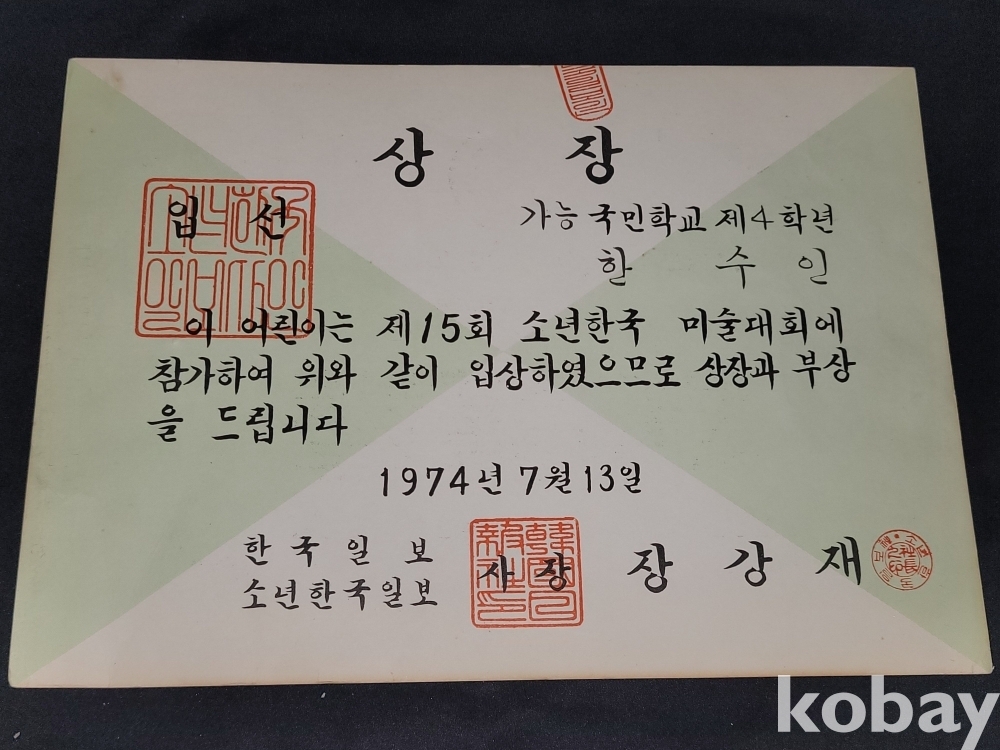 상 장
입 선
가능국민학교 제4학년
한 수 인
이 어린이는 제15회 소년한국 미술대회에
참가하여 위와 같이 입상하였으므로 상장과 부상
을 드립니다
1974년 7월 13일
한국일보
소년한국일보
사장 장강재
kobay